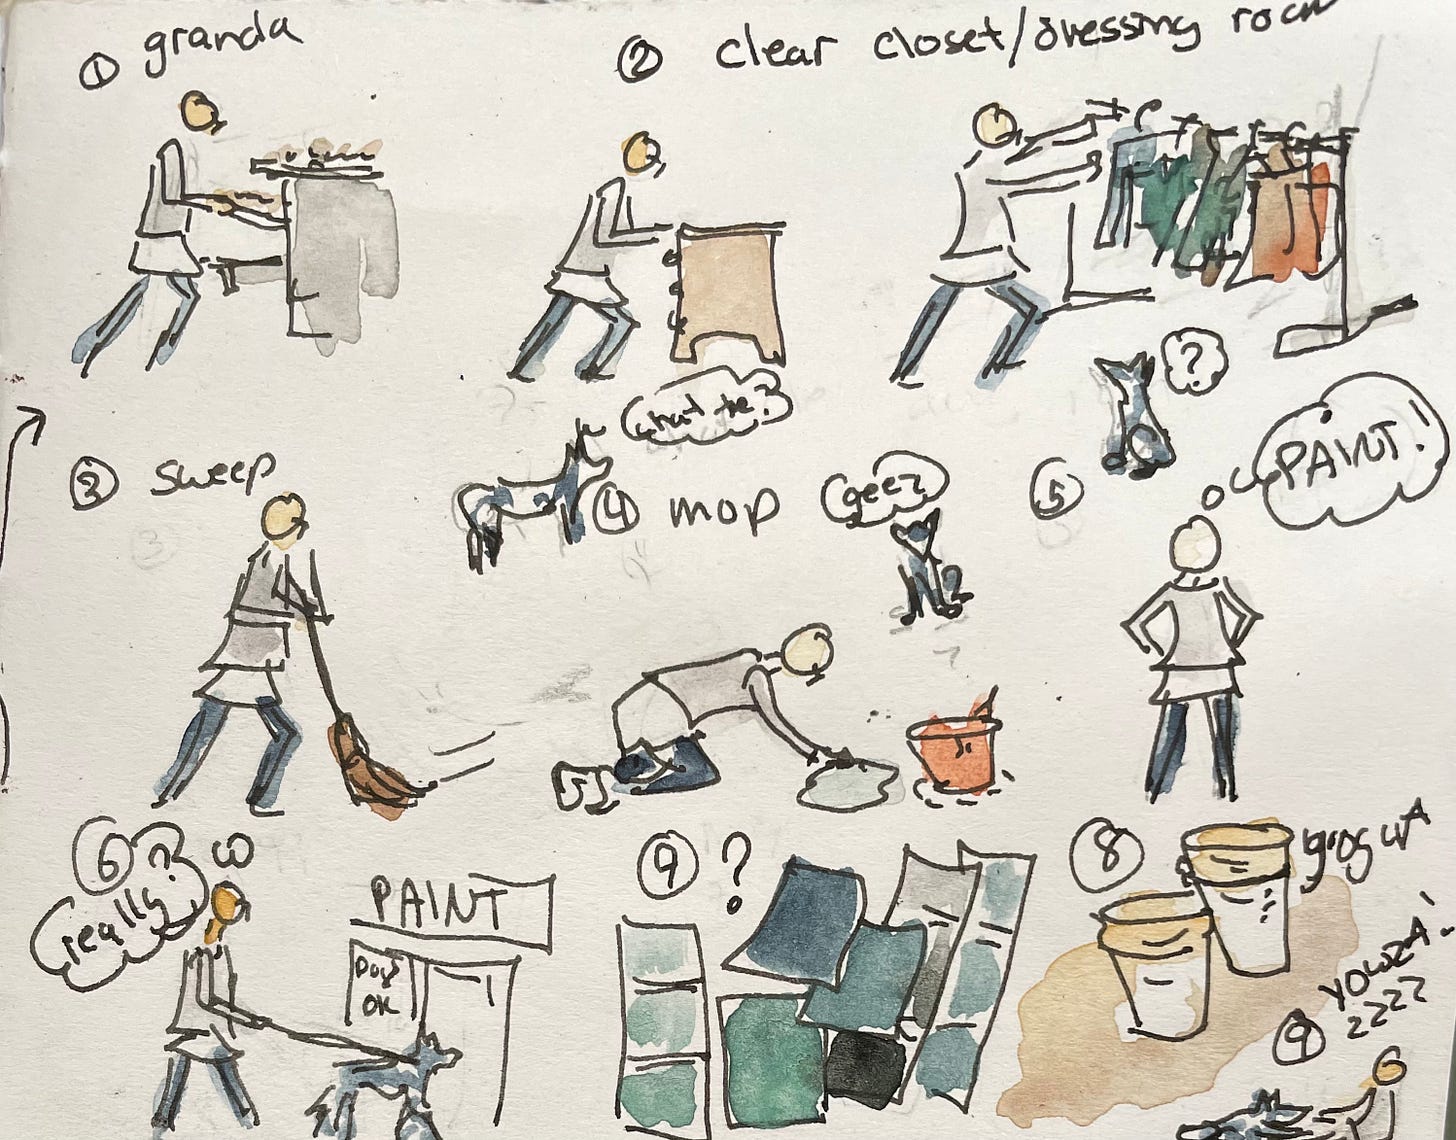 ① granda
② clear closet/dressing room
what the?
?
③ sweep
④ mop
geez
⑤
PAINT!
⑥
really?
PAINT
Dogs
OK
⑨ ?
⑧
YOWZA!
ZZZZ
⑨